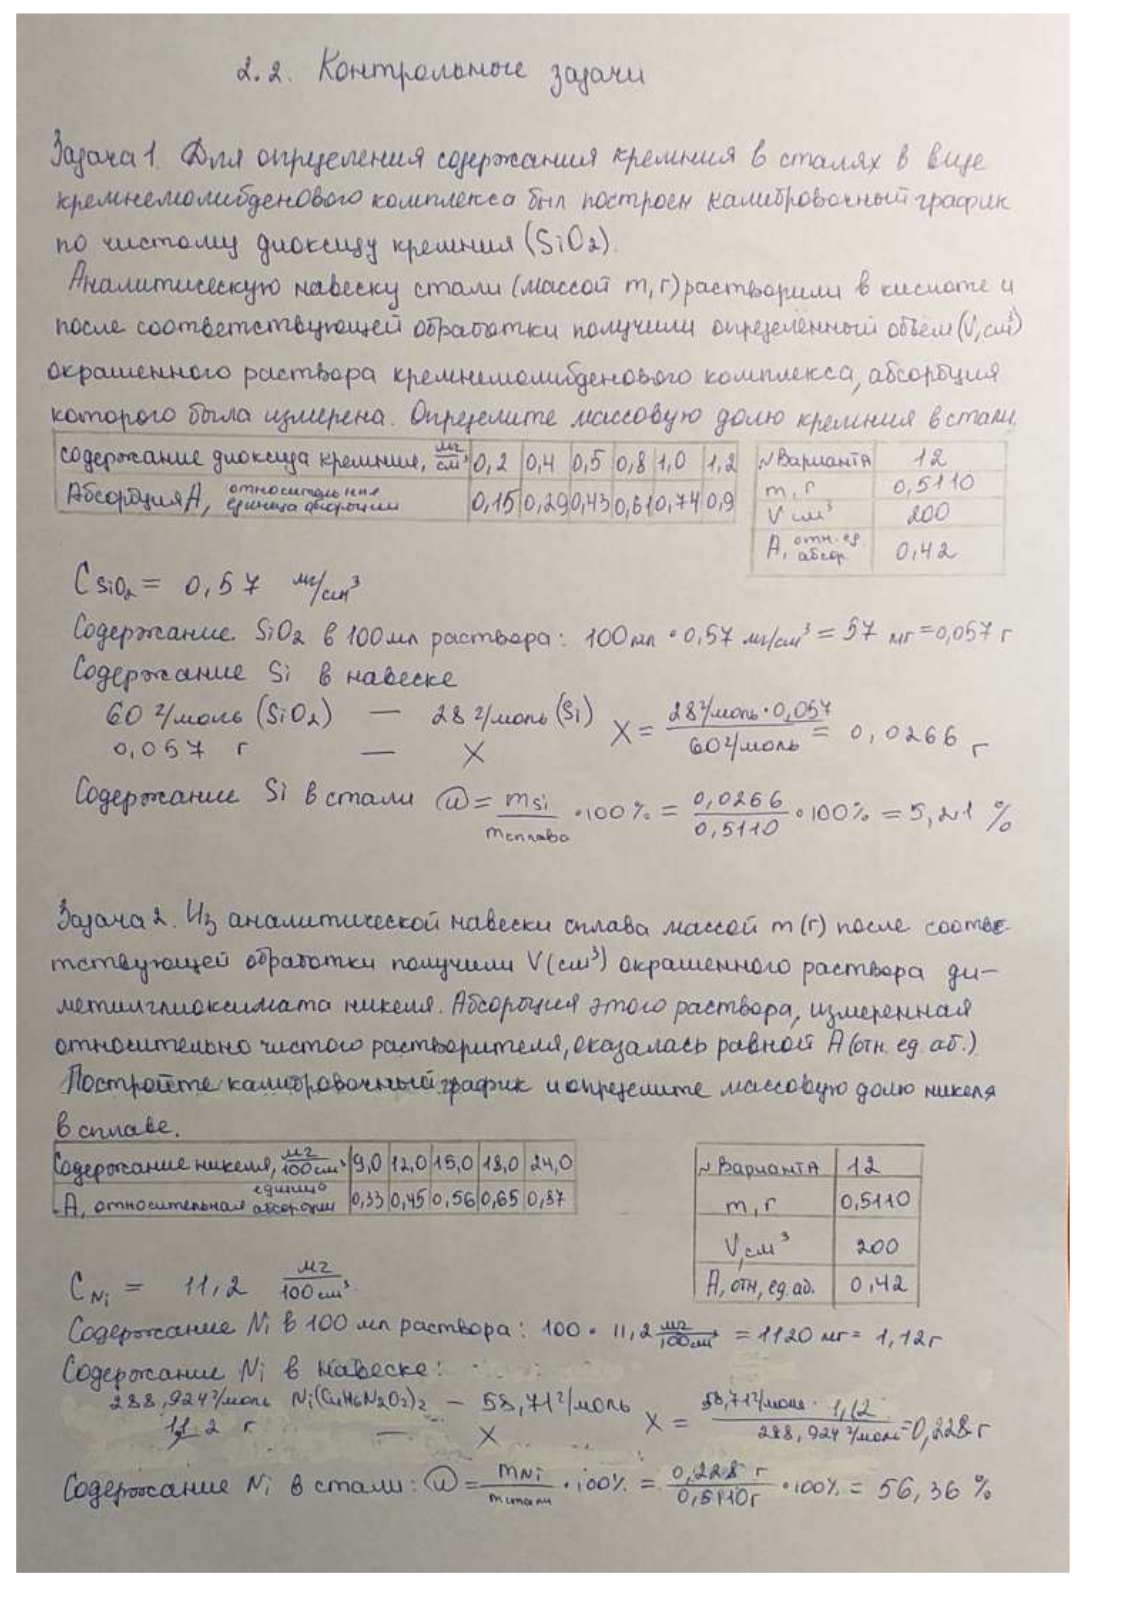 2.2. Контрольные задачи
Задача 1. Для определения содержания кремния в сталях в виде
кремнемолибденового комплекса был построен калибровочный график
по чистому диоксиду кремния (SiO2).
Аналитическую навеску стали (массой m, г) растворили в кислоте и
после соответствующей обработки получили определённый объём (V, см³)
окрашенного раствора кремнемолибденового комплекса, абсорбция
которого была измерена. Определите массовую долю кремния в стали.
содержание диоксида кремния, мг/см³ 0,2 0,4 0,5 0,8 1,0 1,2
Абсорбция А, относительная единица абсорбции 0,15 0,29 0,43 0,61 0,74 0,9
№ Варианта 12
m, г 0,5110
V см³ 200
А, отн. ед. абсор. 0,42
C SiO2 = 0,57 мг/см³
Содержание SiO2 в 100мл раствора: 100мл · 0,57 мг/см³ = 57 мг = 0,057 г
Содержание Si в навеске
60 г/моль (SiO2) — 28 г/моль (Si) X = 28 г/моль · 0,057 / 60 г/моль = 0,0266 г
0,057 г — X
Содержание Si в стали ω = mSi / mсплава · 100% = 0,0266 / 0,5110 · 100% = 5,21 %
Задача 2. Из аналитической навески сплава массой m (г) после соотве-
тствующей обработки получили V (см³) окрашенного раствора ди-
метилглиоксимата никеля. Абсорбция этого раствора, измеренная
относительно чистого растворителя, оказалась равной А (отн. ед. аб.)
Постройте калибровочный график и определите массовую долю никеля
в сплаве.
Содержание никеля, мг/100 см³ 9,0 12,0 15,0 18,0 24,0
А, относительная единица абсорбции 0,33 0,45 0,56 0,65 0,87
№ Варианта 12
m, г 0,5110
V, см³ 200
А, отн, ед. ад. 0,42
C Ni = 11,2 мг/100 см³
Содержание Ni в 100 мл раствора: 100 · 11,2 мг/100см³ = 1120 мг = 1,12 г
Содержание Ni в навеске:
288,924 г/моль Ni(C4H6N2O2)2 — 58,71 г/моль X = 58,71 г/моль · 1,12 / 288,924 г/моль = 0,228 г
11 2 г — X
Содержание Ni в стали: ω = mNi / mстали · 100% = 0,228 г / 0,5110 г · 100% = 56,36 %